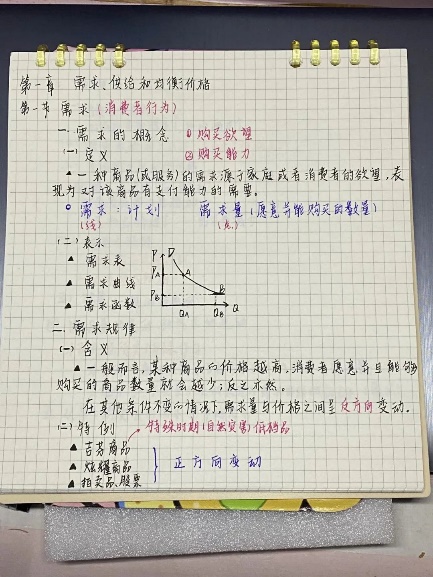 第一章 需求、供给和均衡价格
第一节 需求(消费者行为)
一. 需求的概念 ① 购买欲望
(一) 定义 ② 购买能力
▲ 一种商品(或服务)的需求源于家庭或者消费者的欲望,表
现为对该商品有支付能力的需要。
○ 需求:计划 需求量(愿意并能购买的数量)
(线) (点)
(二) 表示
▲ 需求表
▲ 需求曲线
▲ 需求函数
P D
PA A
PB B
QA QB Q
二. 需求规律
(一) 含义
▲ 一般而言,某种商品的价格越高,消费者愿意并且能够
购买的商品数量就会越少;反之亦然。
在其他条件不变的情况下,需求量与价格之间呈反方向变动。
(二) 特例 特殊时期(自然灾害)低档品
▲ 吉芬商品
▲ 炫耀商品 正方向变动
▲ 拍卖品、股票